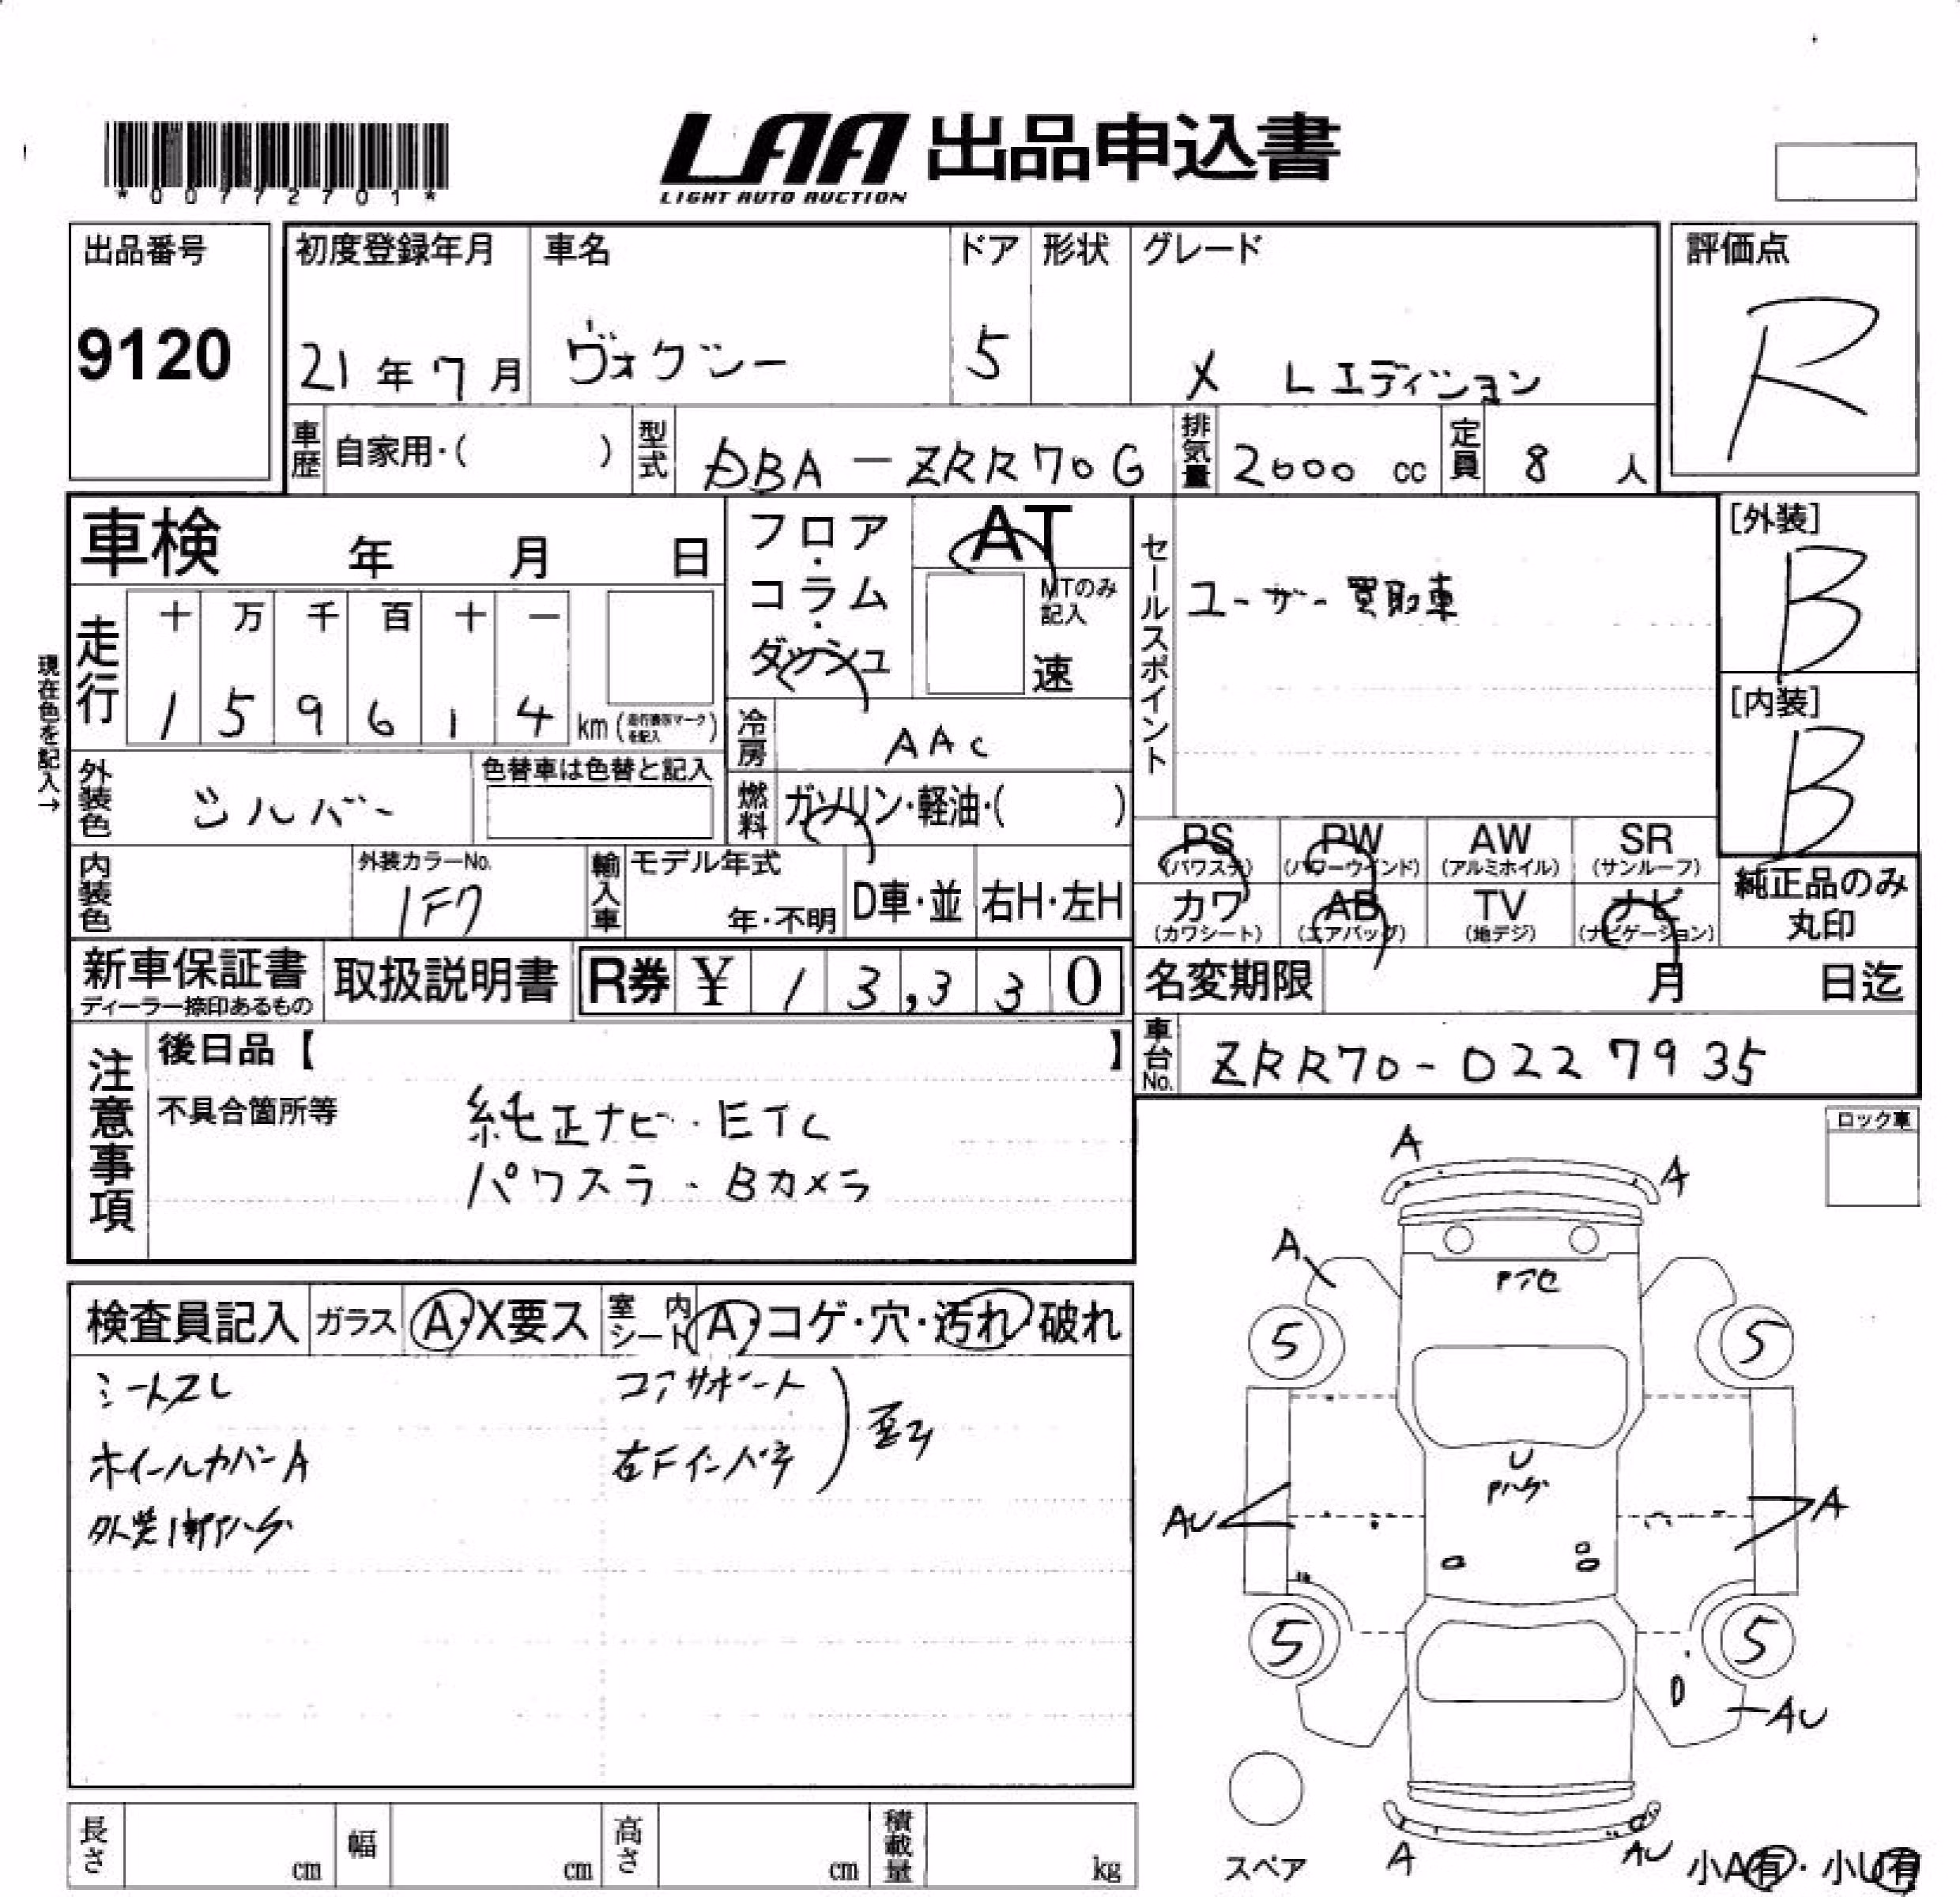 *00772701*
LAA 出品申込書
LIGHT AUTO AUCTION
出品番号
9120
初度登録年月
21年7月
車名
ヴォクシー
ドア
5
形状
グレード
X Lエディション
評価点
R
車歴
自家用・( )
型式
DBA-ZRR70G
排気量
2000 cc
定員
8 人
車検 年 月 日
フロア・コラム・ダッシュ
AT
MTのみ記入
速
セールスポイント
ユーザー買取車
[外装]
B
[内装]
B
現在色を記入→
走行
十 万 千 百 十 一
1 5 9 6 1 4 km
冷房
AAC
外装色
シルバー
色替車は色替と記入
燃料
ガソリン・軽油・( )
PS
(パワステ)
PW
(パワーウインド)
AW
(アルミホイル)
SR
(サンルーフ)
カワ
(カワシート)
AB
(エアバッグ)
TV
(地デジ)
ナビ
(ナビゲーション)
純正品のみ
丸印
内装色
外装カラーNo.
1F7
輸入車
モデル年式
年・不明
D車・並
右H・左H
新車保証書
ディーラー捺印あるもの
取扱説明書
R券 ¥ 13,330
名変期限 月 日迄
車台No.
ZRR70-0227935
注意事項
後日品【 】
不具合箇所等
純正ナビ・ETC
パワスラ・Bカメラ
ロック車
検査員記入
ガラス
A・X要ス
室内シート
A・コゲ・穴・汚れ・破れ
シートスレ
コアサポート
ホイールカバーA
右Fインパネ
A
A
A
5
5
U
Pハゲ
AU
A
5
5
AU
A
AU
スペア
小A有・小U有
長さ cm
幅 cm
高さ cm
積載量 kg